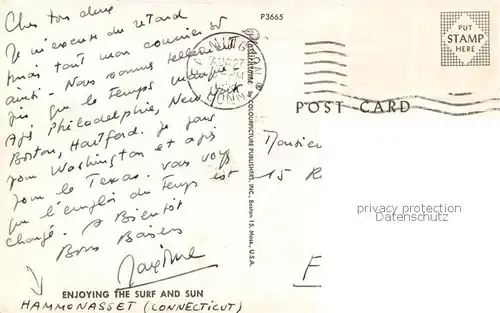 Cher tonton
Je m'excuse du retard
mais tout mon courrier est
ainsi - Nous sommes tellement
pris que le temps manque -
Après Philadelphie, New York
Boston, Hartford. je pars
pour Washington et après
pour le Texas. vous voyez
que l'emploi du temps est
changé. A Bientôt
Bons Baisers
ENJOYING THE SURF AND SUN
HAMMONASSET (CONNECTICUT)
P3665
AUG 27
PM
CONN.
by COLOURPICTURE PUBLISHERS, INC., Boston 15, Mass., U.S.A.
PUT
STAMP
HERE
POST CARD
Monsieur
15 R
F
privacy protection
Datenschutz